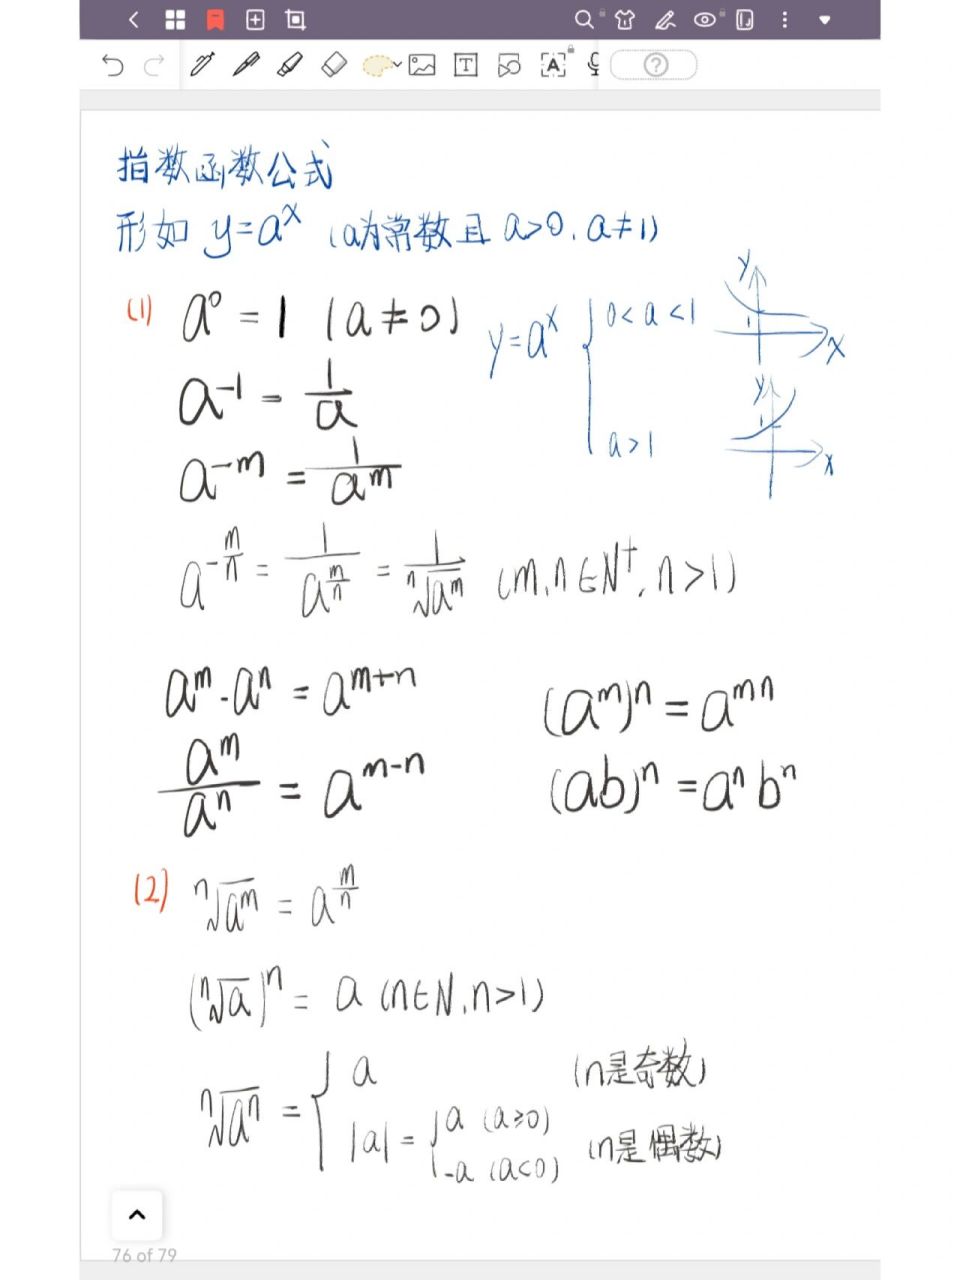 指数函数公式
形如 y=aˣ (a为常数且 a>0, a≠1)
(1) a⁰ = 1 (a≠0)
y=aˣ { 0<a<1
y
1
x
a>1
y
1
x
a⁻¹ = 1/a
a⁻ᵐ = 1/aᵐ
a^(-m/n) = 1/a^(m/n) = 1/ⁿ√aᵐ (m,n∈N⁺, n>1)
aᵐ·aⁿ = aᵐ⁺ⁿ
(aᵐ)ⁿ = aᵐⁿ
aᵐ/aⁿ = aᵐ⁻ⁿ
(ab)ⁿ = aⁿbⁿ
(2) ⁿ√aᵐ = a^(m/n)
(ⁿ√a)ⁿ = a (n∈N, n>1)
ⁿ√aⁿ = { a (n是奇数)
|a| = { a (a≥0)
-a (a<0) (n是偶数)
76 of 79